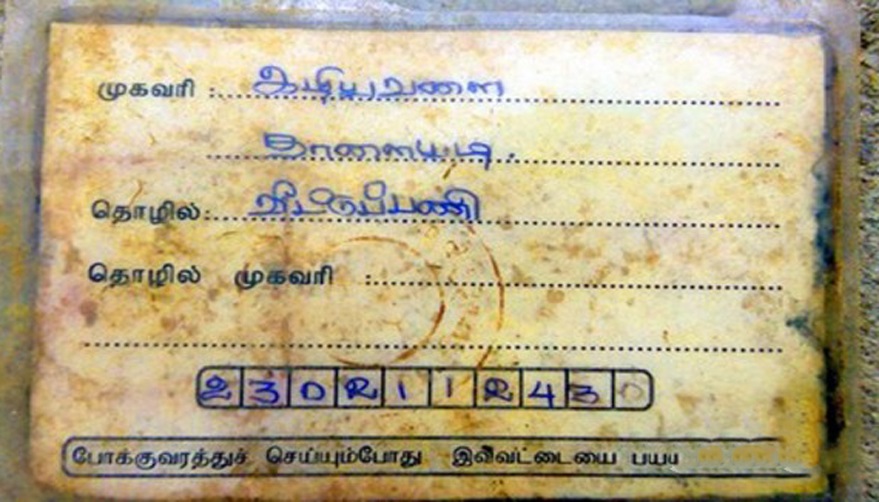 முகவரி : உடியபவளை
தாளையடி.
தொழில்: வீட்டுப்பணி
தொழில் முகவரி :
2302112430
போக்குவரத்துச் செய்யும்போது இவ்வட்டையை